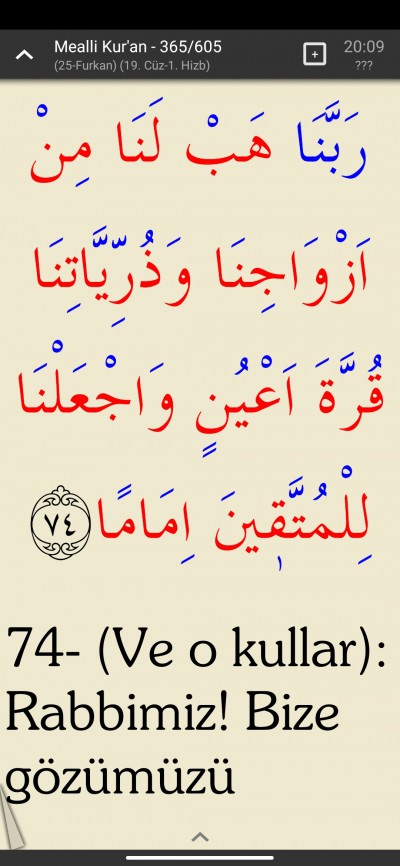 Mealli Kur'an - 365/605
20:09
(25-Furkan) (19. Cüz-1. Hizb)
???
رَبَّنَا هَبْ لَنَا مِنْ
اَزْوَاجِنَا وَذُرِّيَّاتِنَا
قُرَّةَ اَعْيُنٍ وَاجْعَلْنَا
لِلْمُتَّق۪ينَ اِمَامًا ٧٤
74- (Ve o kullar):
Rabbimiz! Bize
gözümüzü